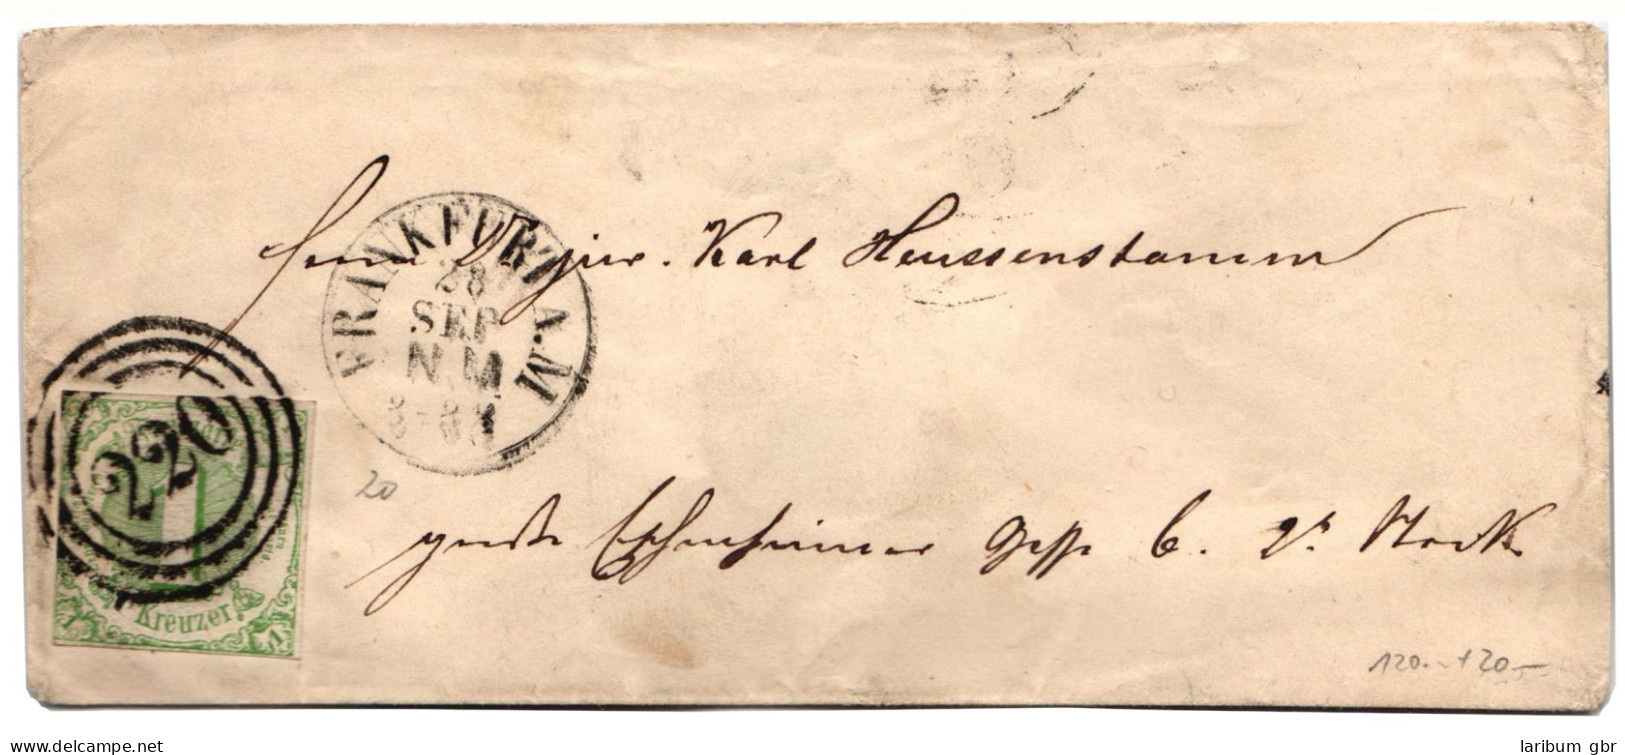 Herrn Dr jur. Karl Heussenstamm
FRANKFURT A.M.
28
SEP
N.M.
220
1
Kreuzer
1
20
große Eschenheimer Gasse 6. 2r Stock
120.- + 20.-
delcampe.net
laribum gbr